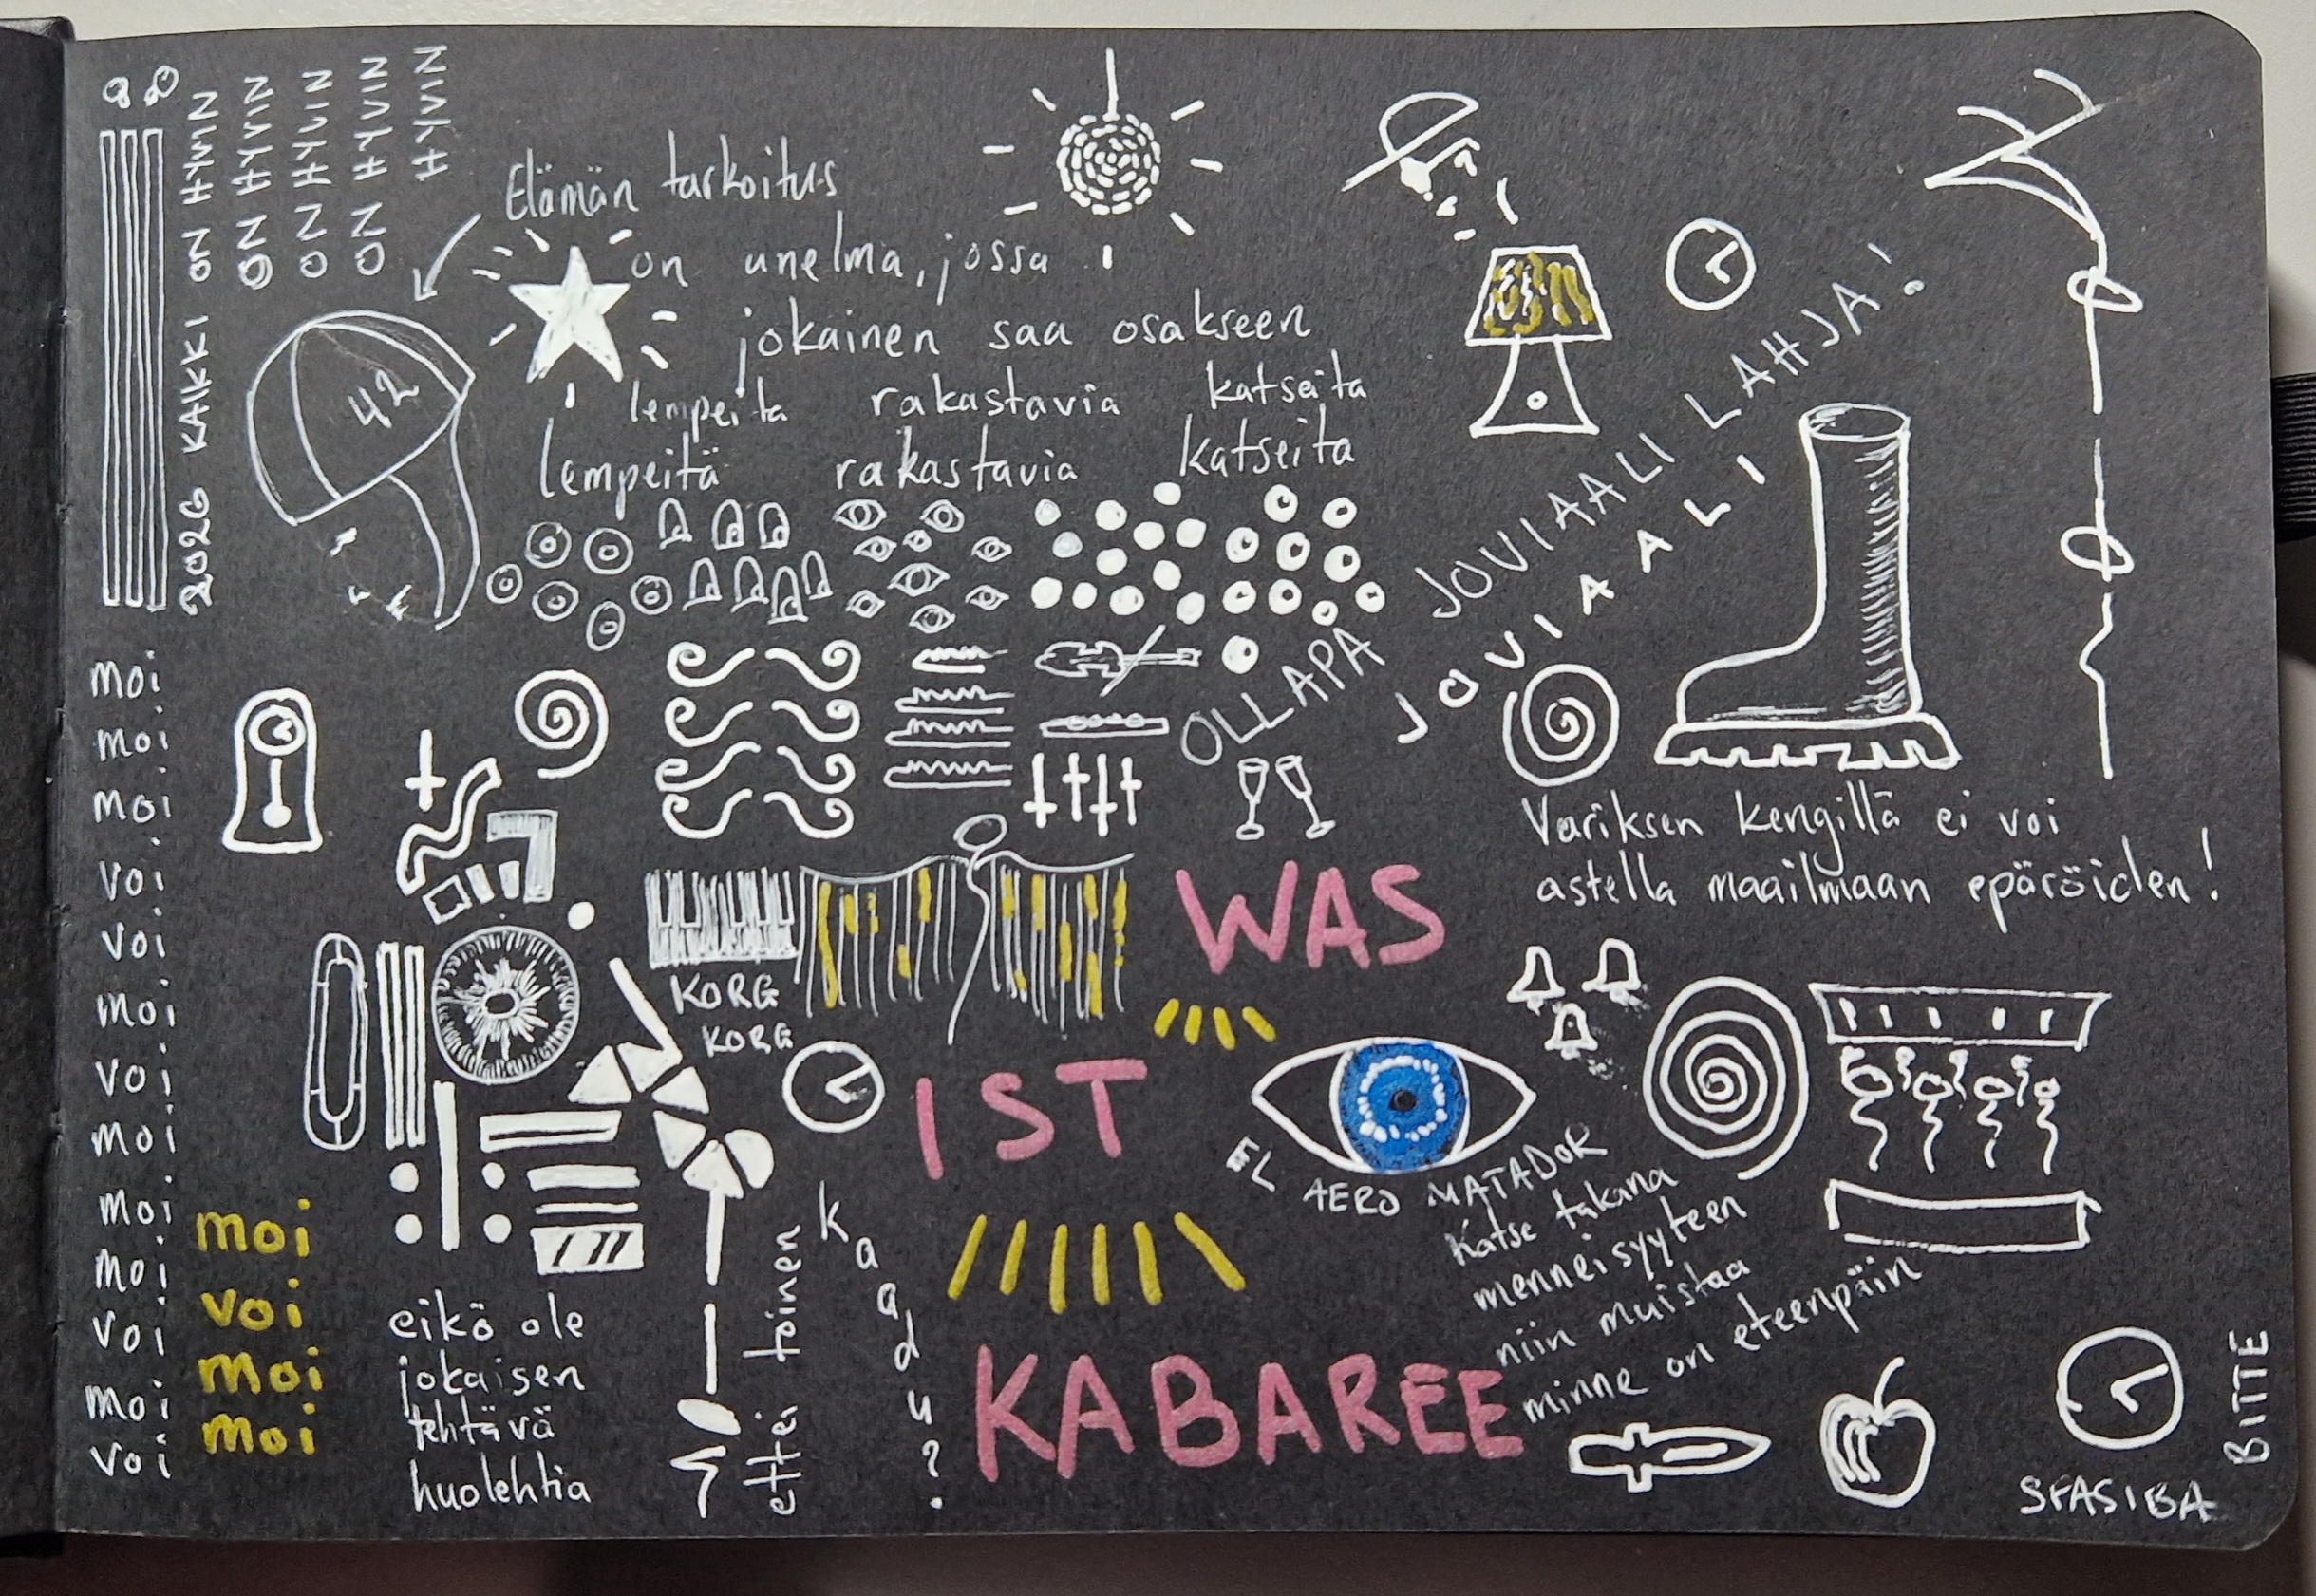 2026 KAIKKI ON HYVIN
ON HYVIN
ON HYVIN
ON HYVIN
HYVIN
Elämän tarkoitus
on unelma, jossa
jokainen saa osakseen
lempeitä rakastavia katseita
lempeitä rakastavia katseita
42
OLLAPA JOVIAALI LAHJA!
JOVIAALI
moi
moi
moi
voi
voi
moi
voi
moi
moi
moi
voi
moi
voi
moi
voi
moi
moi
Variksen kengillä ei voi
astella maailmaan epäröiden!
KORG
KORG
WAS
IST
KABAREE
EL AERO MATADOR
Katse takana
menneisyyteen
niin muistaa
minne on eteenpäin
eikö ole
jokaisen
tehtävä
huolehtia
ettei toinen
kaadu?
SPASIBA
BITTE